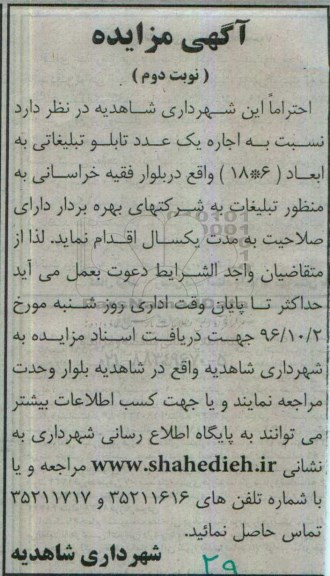 آگهی مزایده
( نوبت دوم )
احتراماً این شهرداری شاهدیه در نظر دارد
نسبت به اجاره یک عدد تابلو تبلیغاتی به
ابعاد ( ۶*۱۸ ) واقع دربلوار فقیه خراسانی به
منظور تبلیغات به شرکتهای بهره بردار دارای
صلاحیت به مدت یکسال اقدام نماید. لذا از
متقاضیان واجد الشرایط دعوت بعمل می آید
حداکثر تا پایان وقت اداری روز شنبه مورخ
۹۶/۱۰/۲ جهت دریافت اسناد مزایده به
شهرداری شاهدیه واقع در شاهدیه بلوار وحدت
مراجعه نمایند و یا جهت کسب اطلاعات بیشتر
می توانند به پایگاه اطلاع رسانی شهرداری به
نشانی www.shahedieh.ir مراجعه و یا
با شماره تلفن های ۳۵۲۱۱۶۱۶ و ۳۵۲۱۱۷۱۷
تماس حاصل نمائید.
شهرداری شاهدیه
۲۹